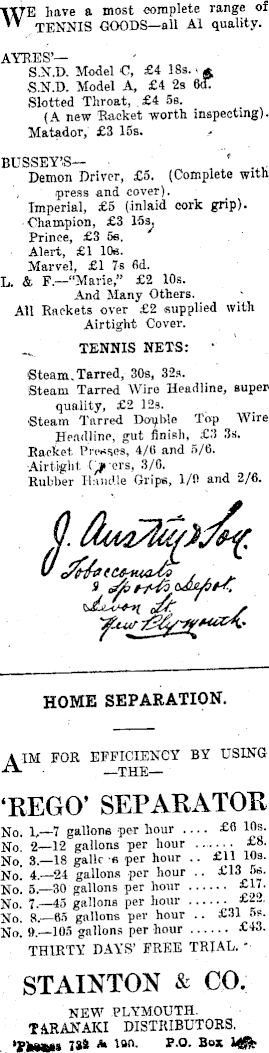 WE have a most complete range of
TENNIS GOODS—all A1 quality.
AYRES'—
S.N.D. Model C, £4 18s.
S.N.D. Model A, £4 2s 6d.
Slotted Throat, £4 5s.
(A new Racket worth inspecting).
Matador, £3 15s.
BUSSEY'S—
Demon Driver, £5. (Complete with
press and cover).
Imperial, £5 (inlaid cork grip).
Champion, £3 15s,
Prince, £3 5s.
Alert, £1 10s.
Marvel, £1 7s 6d.
L. & F.—"Marie," £2 10s.
And Many Others.
All Rackets over £2 supplied with
Airtight Cover.
TENNIS NETS:
Steam Tarred, 30s, 32s.
Steam Tarred Wire Headline, super
quality, £2 12s.
Steam Tarred Double Top Wire
Headline, gut finish, £3 3s.
Racket Presses, 4/6 and 5/6.
Airtight Covers, 3/6.
Rubber Handle Grips, 1/9 and 2/6.
J. Austin & Son.
Tobacconists
& Sports Depot.
Devon St.
New Plymouth.
HOME SEPARATION.
AIM FOR EFFICIENCY BY USING
—THE—
'REGO' SEPARATOR
No. 1.—7 gallons per hour .... £6 10s.
No. 2—12 gallons per hour ...... £8.
No. 3.—18 gallons per hour .. £11 10s.
No. 4.—24 gallons per hour .. £13 5s.
No. 5.—30 gallons per hour ...... £17.
No. 7.—45 gallons per hour ...... £22
No. 8.—65 gallons per hour .. £31 5s.
No. 9.—105 gallons per hour ...... £43.
THIRTY DAYS' FREE TRIAL.
STAINTON & CO.
NEW PLYMOUTH.
TARANAKI DISTRIBUTORS.
'Phones & 190. P.O. Box